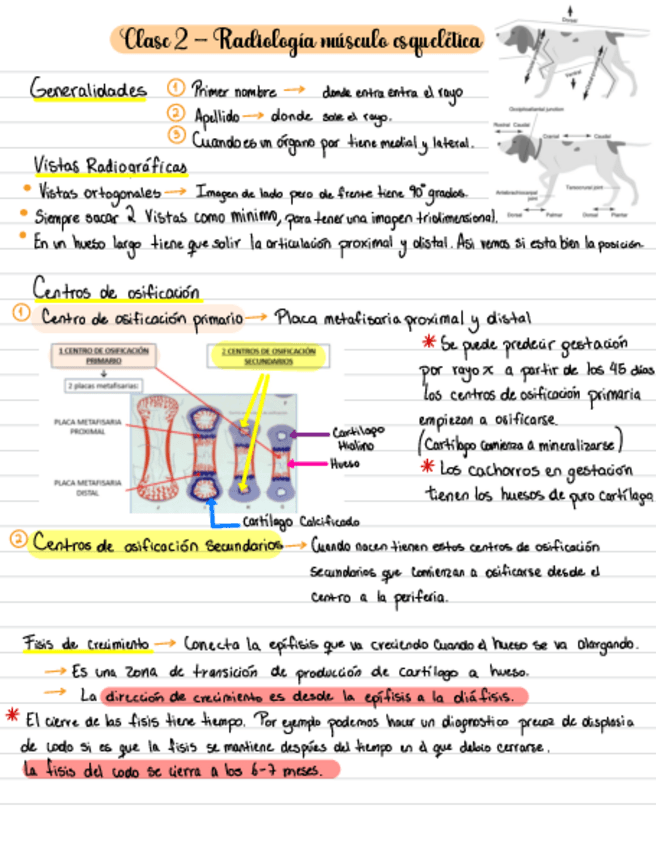 Clase 2 – Radiología músculo esquelética
Generalidades
① Primer nombre → donde entra entra el rayo
② Apellido → donde sale el rayo.
③ Cuando es un órgano par tiene medial y lateral.
Dorsal
Ventral
Occipitoatlantal junction
Rostral Caudal
Cranial Caudal
Antebrachiocarpal joint
Tarsocrural joint
Dorsal Palmar Dorsal Plantar
Vistas Radiográficas
• Vistas ortogonales → Imagen de lado pero de frente tiene 90° grados.
• Siempre sacar 2 Vistas como minimo, para tener una imagen tridimensional.
• En un hueso largo tiene que salir la articulación proximal y distal. Asi vemos si esta bien la posición.
Centros de osificación
① Centro de osificación primario → Placa metafisaria proximal y distal
1 CENTRO DE OSIFICACIÓN
PRIMARIO
2 placas metafisarias:
2 CENTROS DE OSIFICACIÓN
SECUNDARIOS
PLACA METAFISARIA
PROXIMAL
PLACA METAFISARIA
DISTAL
Cartílago
Hialino
Hueso
Cartílago Calcificado
* Se puede predecir gestación
por rayo x a partir de los 45 días
los centros de osificación primaria
empiezan a osificarse.
(Cartílago comienza a mineralizarse)
* Los cachorros en gestación
tienen los huesos de puro cartílago
② Centros de osificación Secundarios → Cuando nacen tienen estos centros de osificación
secundarios que comienzan a osificarse desde el
centro a la periferia.
Fisis de crecimiento → Conecta la epífisis que va creciendo cuando el hueso se va alargando.
→ Es una zona de transición de producción de cartílago a hueso.
→ La dirección de crecimiento es desde la epífisis a la diáfisis.
* El cierre de las fisis tiene tiempo. Por ejemplo podemos hacer un diagnostico precoz de displasia
de codo si es que la fisis se mantiene despúes del tiempo en el que debio cerrarse.
La fisis del codo se cierra a los 6-7 meses.